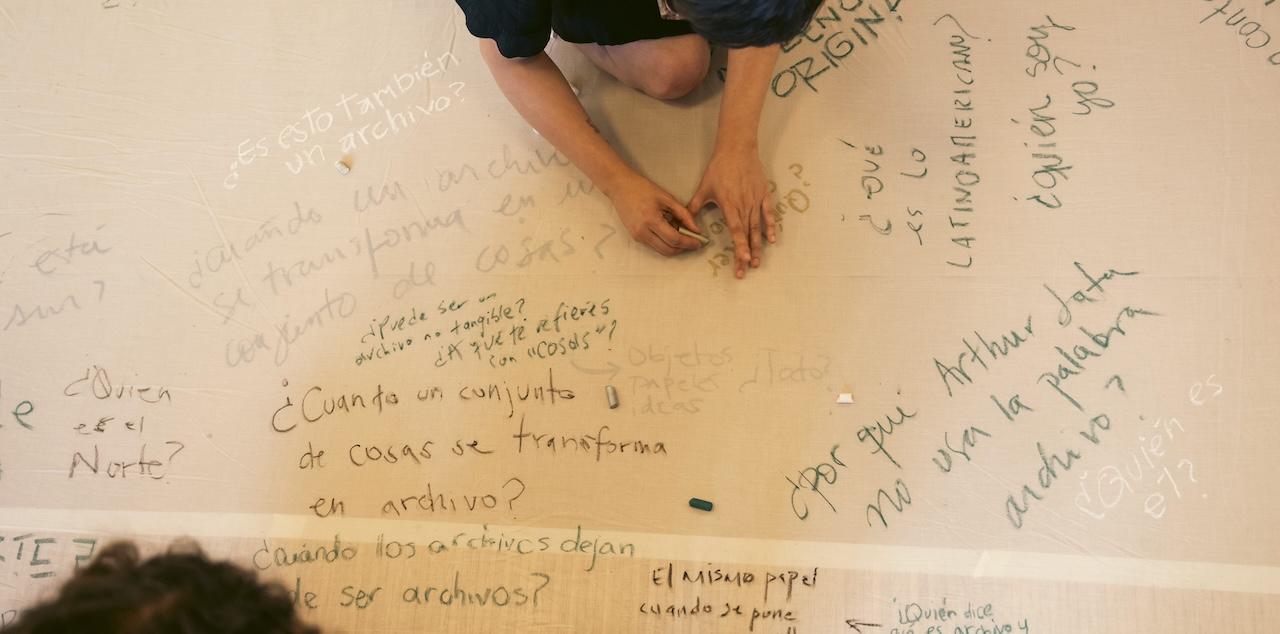 ORIGIN?
¿Es esto también
un archivo?
¿cuándo un archivo
se transforma en un
conjunto de cosas?
está
sur?
¿QUÉ
es LO
LATINOAMERICANO?
¿quién soy
yo?
¿Puede ser un
archivo no tangible?
¿A qué te refieres
con "cosas"?
Objetos
papeles ¿Todo?
ideas
¿Quien
es el
Norte?
¿Cuanto un conjunto
de cosas se transforma
en archivo?
¿por qui Arthur Jafa
no usa la palabra
archivo?
¿Quién es
él?
¿cuándo los archivos dejan
de ser archivos?
El mismo papel
cuando se pone
¿Quién dice
qué es archivo y